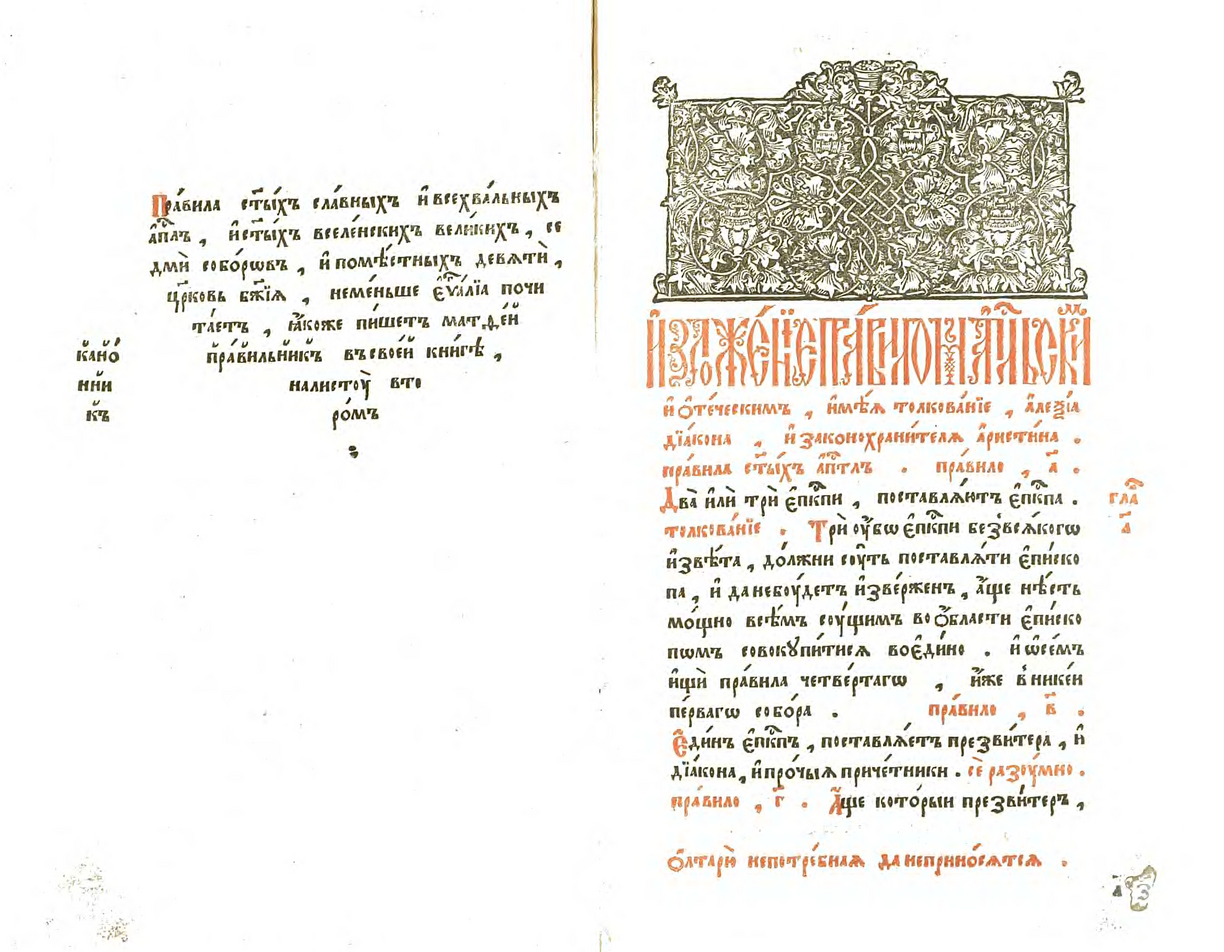 Пра́вила ст҃ы́хъ сла́вныхъ и҆всехва́льныхъ
а҆пⷭ҇лъ , и҆ст҃ы́хъ вселе́нскихъ вели́кихъ , се
дмѝ собо́рѡвъ , и҆помѣ́стныхъ девѧтѝ ,
цр҃ковь бж҃їѧ , неме́ньше є҆ѵⷢ҇а́лїа почи
та́етъ , ꙗ҆́коже пи́шетъ матѳе́й
пра́вильникъ въсвое́й кни́гѣ ,
налистоу̀ вто
ро́мъ
кано́
ни́и
къ
и҆ ѻ҆те́ческимъ , и҆мѣ́ѧ толкова́нїе , а҆леѯі́а
дїа́кона , и҆ законохрани́телѧ а҆ристи́на .
пра́вила ст҃ы́хъ а҆пⷭ҇тлъ . пра́вило , а҃ .
Два̀ и҆лѝ трѝ є҆пⷭ҇кпи , поставлѧ́ютъ є҆пⷭ҇кпа .
толкова́нїе . Трѝ оу҆́бѡ є҆пⷭ҇кпи без̾всѧ́кагѡ
и҆звѣ́та , до́лжни соу́ть поставлѧ́ти є҆пи́ско
па , и҆ данебоу́детъ и҆зве́рженъ , а҆́ще нѣ́сть
мо́щно всѣ́мъ соу́щимъ во ѻ҆́бласти є҆пи́ско
пѡмъ совокꙋпи́тисѧ воє҆ди́но . и҆ ѡ҆се́мъ
и҆щѝ пра́вила четве́ртагѡ , и҆́же в̾ нике́и
пе́рвагѡ собо́ра . пра́вило , в҃ .
Є҆ди́нъ є҆пⷭ҇кпъ , поставлѧ́етъ презви́тера , и҆
дїа́кона , и҆про́чыѧ приче́тники . сѐ разоу́мно .
пра́вило , г҃ . А҆́ще кото́рыи презви́теръ ,
ѻ҆лтарю̀ непотре́бнаѧ данеприно́сѧтсѧ .
глⷡ҇а
а҃